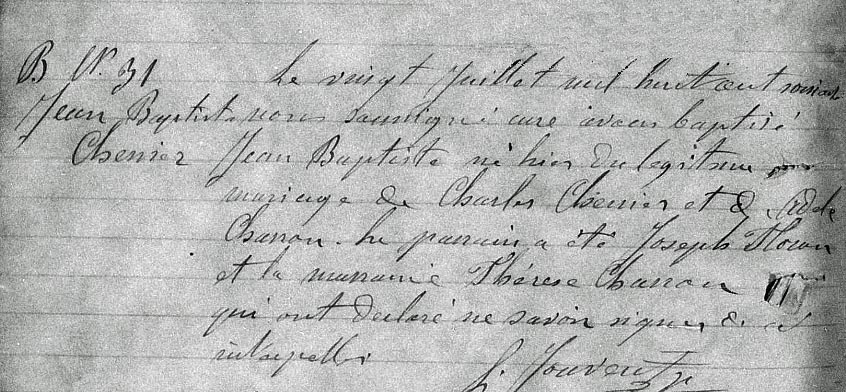 B N. 31 Le vingt Juillet mil huit cent soixante
Jean Baptiste nous soussigné curé avons baptisé
Chenier Jean Baptiste né hier du legitime
mariage de Charles Chenier et de Adele
Charron. Le parrain a été Joseph
et la marraine Thérèse Charron
qui ont declaré ne savoir signer de ce
interpellés